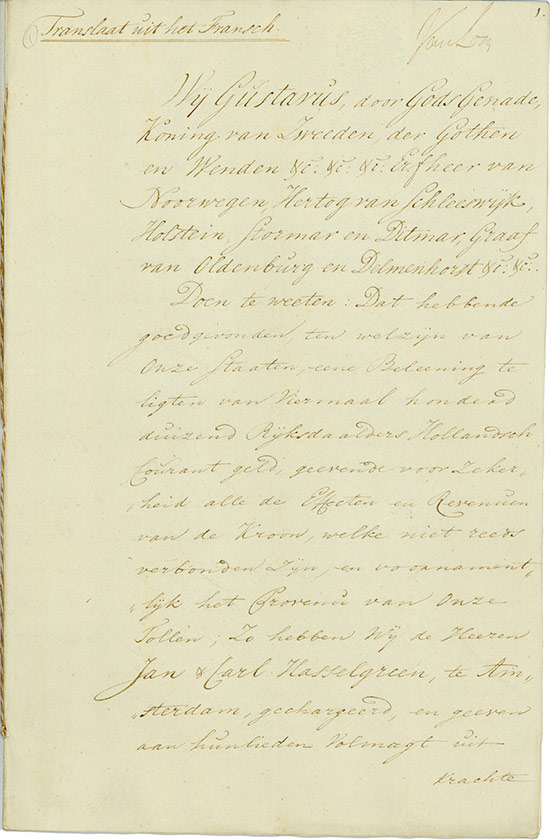 1.
Translaat uit het Fransch.
Van Loon
Wij Gustavus, door Gods Genade,
Koning van Zweeden, der Gothen
en Wenden &c: &c: &c: Erfheer van
Noorwegen Hertog van Schleeswijk,
Holstein, Stormar en Ditmar, Graaf
van Oldenburg en Delmenhorst &c: &c:.
Doen te weeten: Dat hebbende
goedgevonden, ten welzijn van
Onze Staaten, eene Beleening te
ligten van Viermaal honderd
duizend Rijksdaalders Hollandsch
Courant geld, geevende voor Zeker-
„heid alle de Effecten en Revenuen
van de Kroon, welke niet reeds
verbonden Zijn, en voornament-
„lijk het Provenu van Onze
Tollen; Zo hebben Wij de Heeren
Jan & Carl Hasselgreen, te Am-
„sterdam, gechargeerd, en geeven
aan hunlieden Volmagt uit
krachte